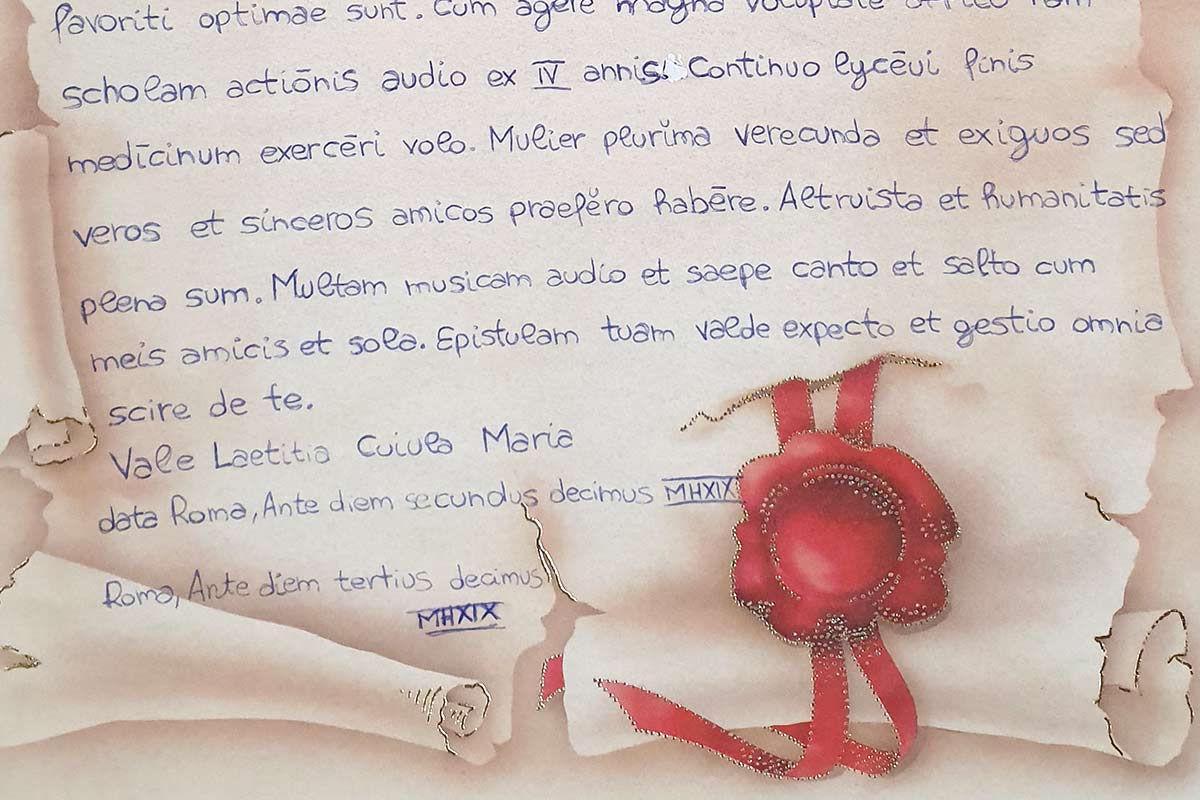 favoriti optimae sunt. Cum agere magna voluptate
scholam actiōnis audio ex IV annis. Continuo lycēvi finis
medīcinum exercēri volo. Mulier plurĭma verecunda et exiguos sed
veros et sinceros amicos praefĕro habēre. Altruista et humanitatis
plena sum. Multam musicam audio et saepe canto et salto cum
meis amicis et sola. Epistulam tuam valde expecto et gestio omnia
scire de te.
Vale Laetitia Cuiula Maria
data Roma, Ante diem secundus decimus MHXIX
Roma, Ante diem tertius decimus
MHXIX